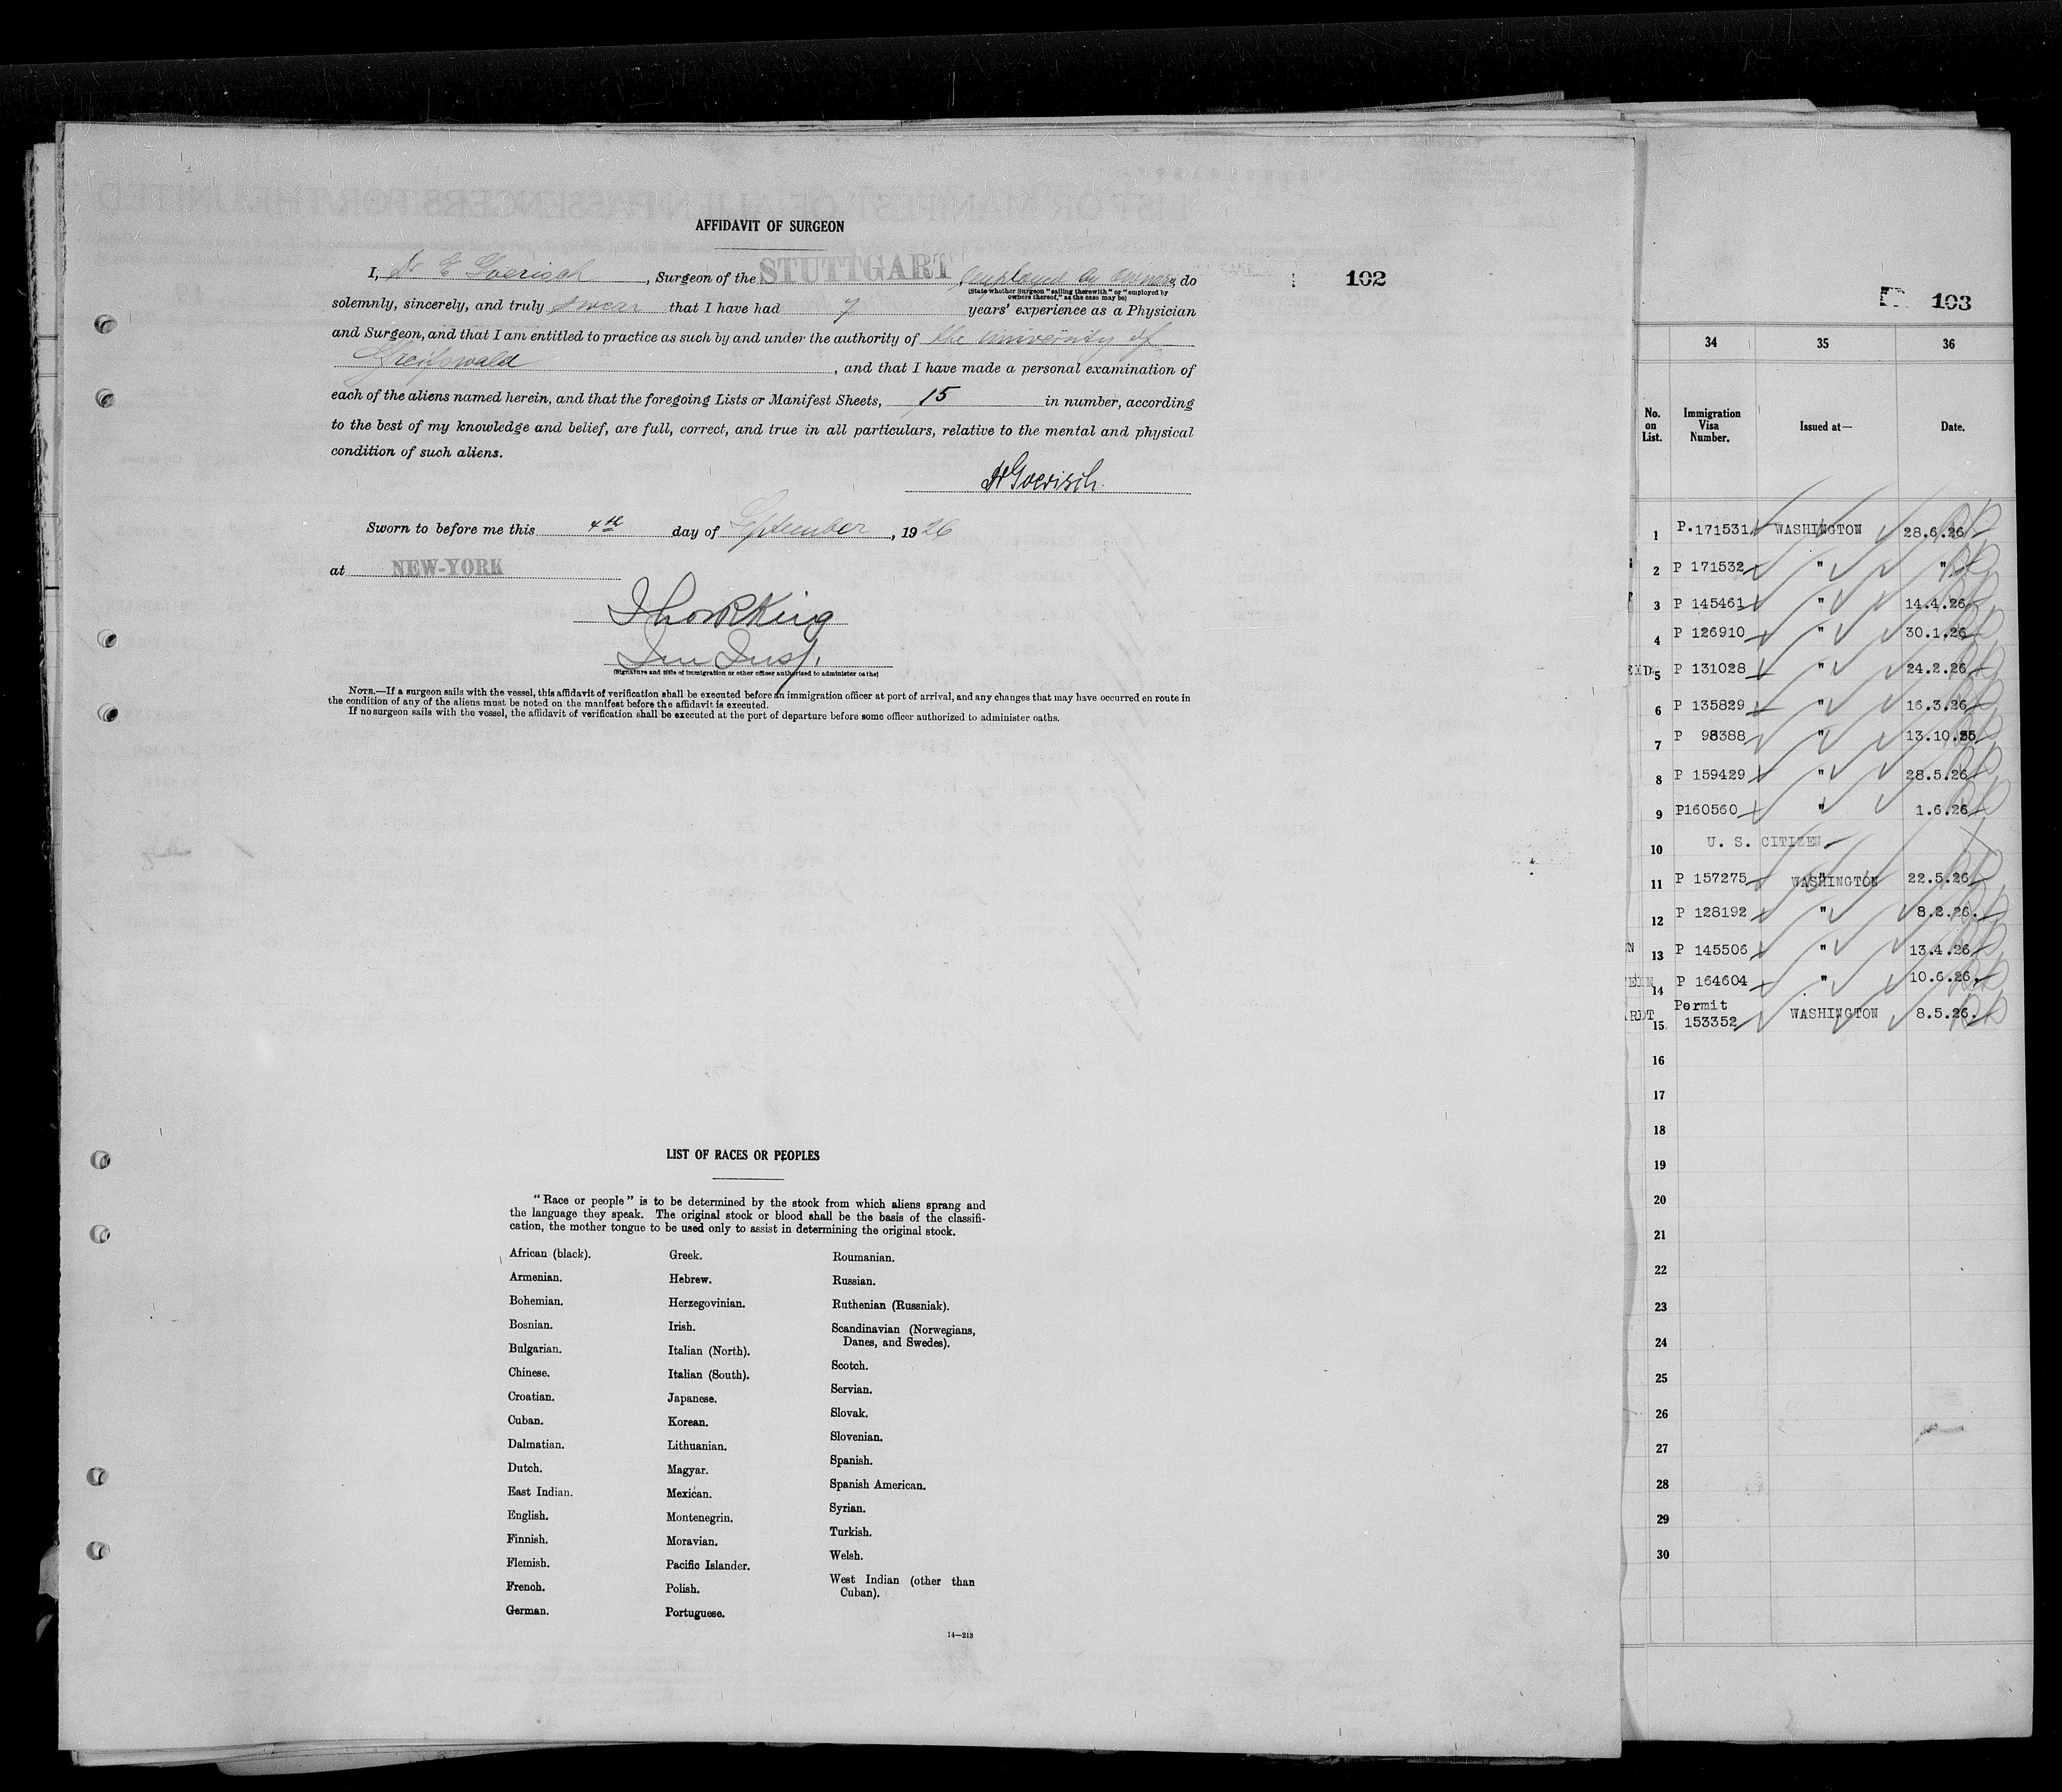 AFFIDAVIT OF SURGEON
I, Dr E Goerisch, Surgeon of the STUTTGART employed by owners, do
(State whether Surgeon "sailing therewith" or "employed by
owners thereof," as the case may be)
solemnly, sincerely, and truly swear that I have had 7 years' experience as a Physician
and Surgeon, and that I am entitled to practice as such by and under the authority of the university of
Greifswald, and that I have made a personal examination of
each of the aliens named herein, and that the foregoing Lists or Manifest Sheets, 15 in number, according
to the best of my knowledge and belief, are full, correct, and true in all particulars, relative to the mental and physical
condition of such aliens.
Dr Goerisch.
Sworn to before me this 4th day of September, 1926
at NEW-YORK
King
Imm Insp.
(Signature and title of immigration or other officer authorized to administer oaths)
NOTE.—If a surgeon sails with the vessel, this affidavit of verification shall be executed before an immigration officer at port of arrival, and any changes that may have occurred en route in
the condition of any of the aliens must be noted on the manifest before the affidavit is executed.
If no surgeon sails with the vessel, the affidavit of verification shall be executed at the port of departure before some officer authorized to administer oaths.
LIST OF RACES OR PEOPLES
"Race or people" is to be determined by the stock from which aliens sprang and
the language they speak. The original stock or blood shall be the basis of the classifi-
cation, the mother tongue to be used only to assist in determining the original stock.
African (black).
Armenian.
Bohemian.
Bosnian.
Bulgarian.
Chinese.
Croatian.
Cuban.
Dalmatian.
Dutch.
East Indian.
English.
Finnish.
Flemish.
French.
German.
Greek.
Hebrew.
Herzegovinian.
Irish.
Italian (North).
Italian (South).
Japanese.
Korean.
Lithuanian.
Magyar.
Mexican.
Montenegrin.
Moravian.
Pacific Islander.
Polish.
Portuguese.
Roumanian.
Russian.
Ruthenian (Russniak).
Scandinavian (Norwegians,
Danes, and Swedes).
Scotch.
Servian.
Slovak.
Slovenian.
Spanish.
Spanish American.
Syrian.
Turkish.
Welsh.
West Indian (other than
Cuban).
14—213
102
103
34 35 36
No. on List. Immigration Visa Number. Issued at— Date.
1 P.171531 WASHINGTON 28.6.26
2 P 171532 " "
3 P 145461 " 14.4.26
4 P 126910 " 30.1.26
5 P 131028 " 24.2.26
6 P 135829 " 16.3.26
7 P 98388 " 13.10.25
8 P 159429 " 28.5.26
9 P160560 " 1.6.26
10 U. S. CITIZEN
11 P 157275 WASHINGTON 22.5.26
12 P 128192 " 8.2.26.
13 P 145506 " 13.4.26
14 P 164604 " 10.6.26.
ARDT 15 Permit 153352 WASHINGTON 8.5.26.
16
17
18
19
20
21
22
23
24
25
26
27
28
29
30